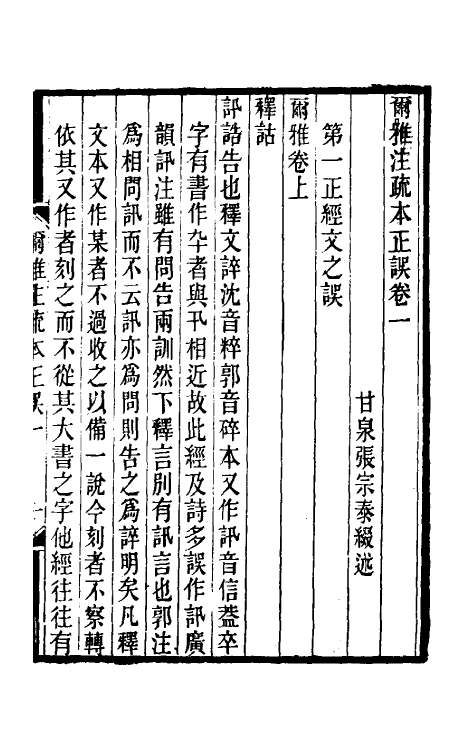 爾雅注疏本正誤卷一
甘泉張宗泰綴述
第一正經文之誤
爾雅卷上
釋詁
訊誥告也釋文誶沈音粹郭音碎本又作訊音信葢卒
字有書作卆者與卂相近故此經及詩多誤作訊廣
韻訊注雖有問告兩訓然下釋言別有訊言也郭注
爲相問訊而不云訊亦爲問則告之爲誶明矣凡釋
文本又作某者不過收之以備一說今刻者不察轉
依其又作者刻之而不從其大書之字他經往往有
爾雅注疏本正誤一
一